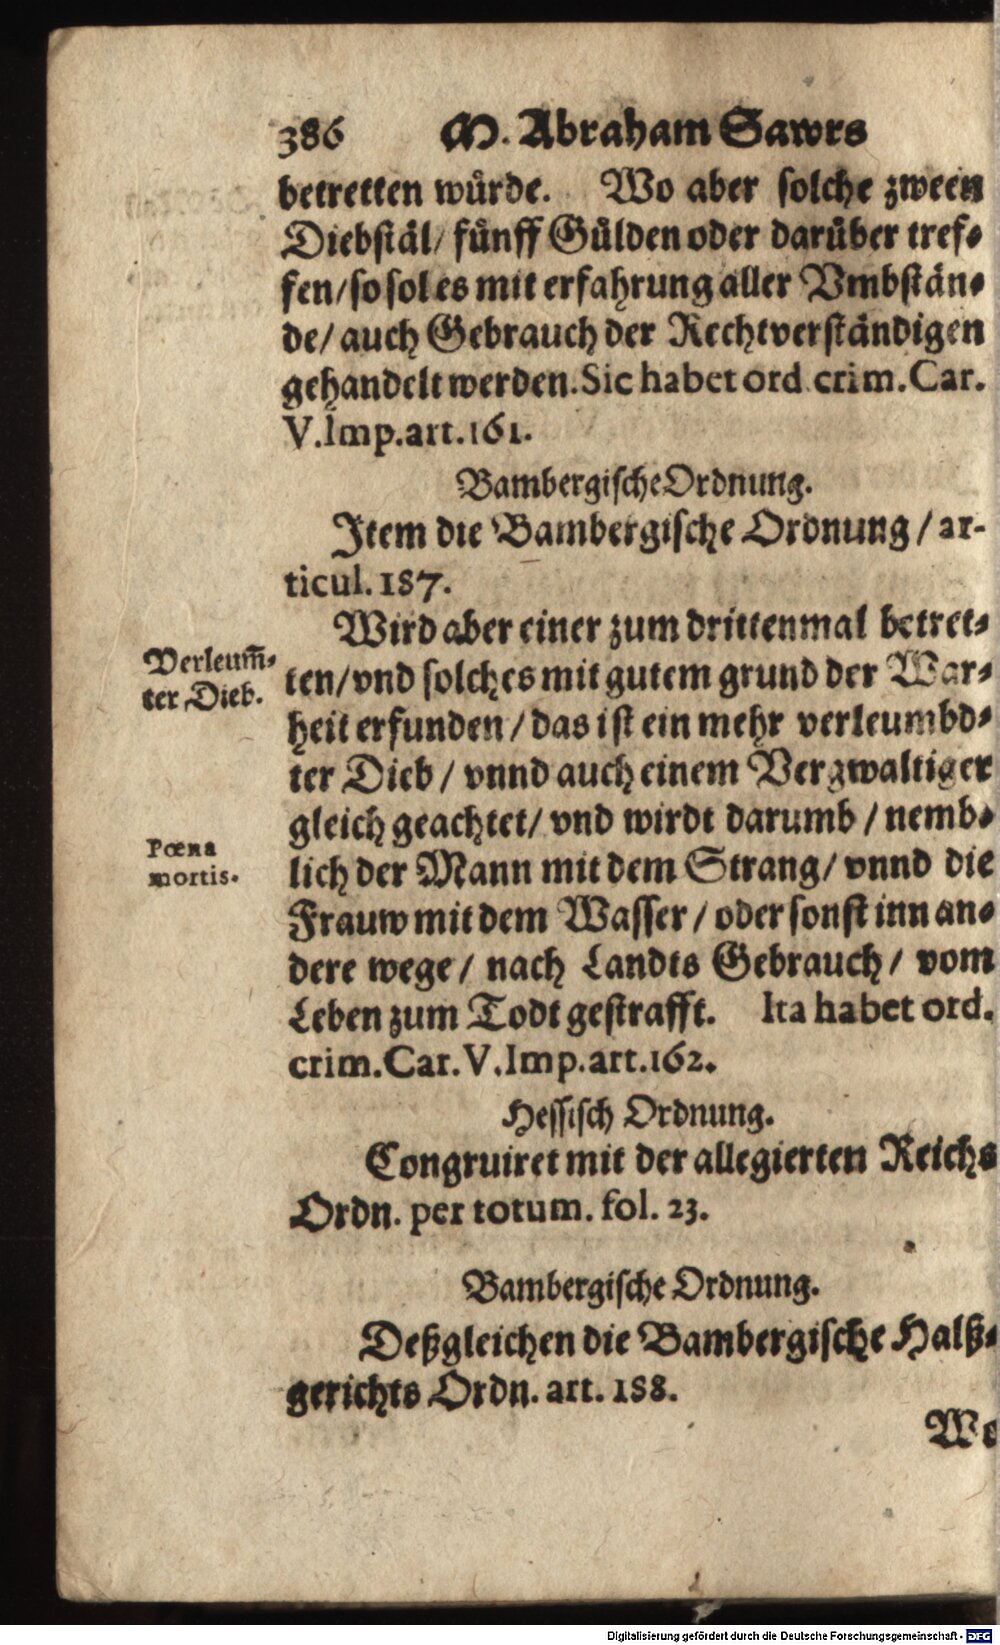 386 M. Abraham Sawrs
betretten würde. Wo aber solche zween
Diebstäl/ fünff Gülden oder darüber tref⸗
fen/ so sol es mit erfahrung aller Vmbstän⸗
de/ auch Gebrauch der Rechtverständigen
gehandelt werden. Sic habet ord. crim. Car.
V. Imp. art. 161.
Bambergische Ordnung.
Item die Bambergische Ordnung / ar-
ticul. 187.
Wird aber einer zum drittenmal betret⸗
Verleum̃⸗
ter Dieb.
ten/ vnd solches mit gutem grund der War⸗
heit erfunden / das ist ein mehr verleumbd⸗
ter Dieb / vnnd auch einem Vergwaltiger
gleich geachtet/ vnd wirdt darumb / nemb⸗
Pœna
mortis.
lich der Mann mit dem Strang/ vnnd die
Frauw mit dem Wasser / oder sonst inn an⸗
dere wege / nach Landts Gebrauch / vom
Leben zum Todt gestrafft. Ita habet ord.
crim. Car. V. Imp. art. 162.
Hessisch Ordnung.
Congruiret mit der allegierten Reichs
Ordn. per totum. fol. 23.
Bambergische Ordnung.
Deßgleichen die Bambergische Halß⸗
gerichts Ordn. art. 188.
Wo
Digitalisierung gefördert durch die Deutsche Forschungsgemeinschaft - DFG